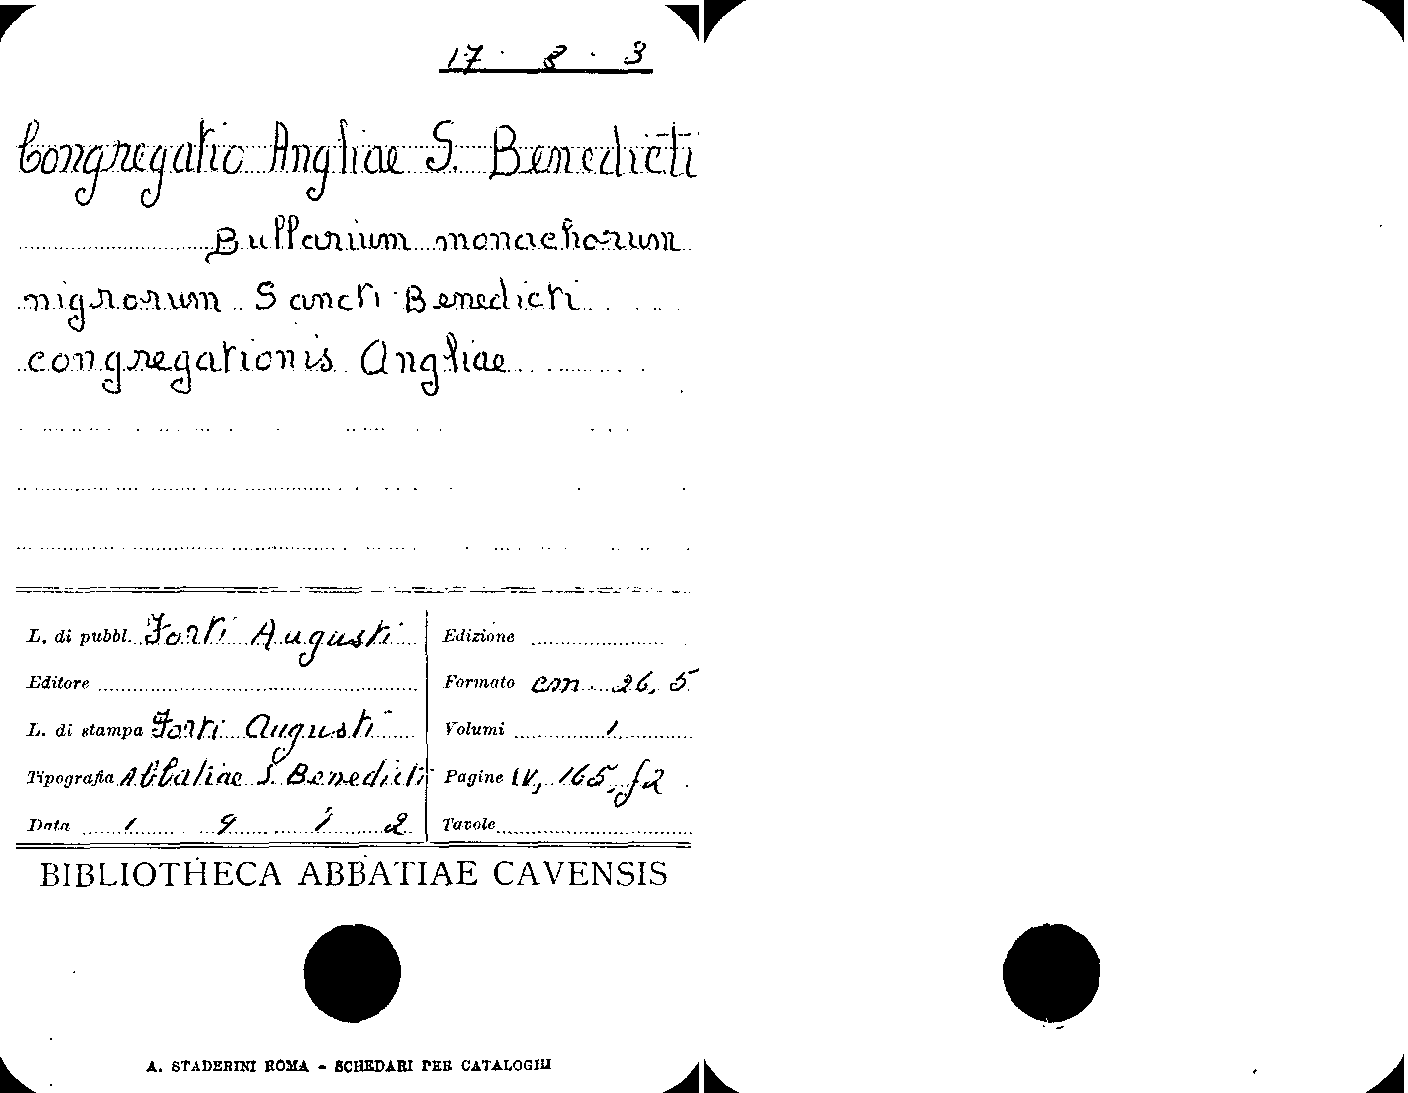 17 · 8 · 3
Congregatio Angliae S. Benedicti
Bullarium monachorum
nigrorum Sancti Benedicti
congregationis Angliae
L. di pubbl. Forti Augusti
Edizione
Editore
Formato cm. 26,5
L. di stampa Forti Augusti
Volumi 1
Tipografia Abbatiae S. Benedicti
Pagine IV, 165, f2
Data 1 9 1 2
Tavole
BIBLIOTHECA ABBATIAE CAVENSIS
A. STADERINI ROMA - SCHEDARI PER CATALOGHI